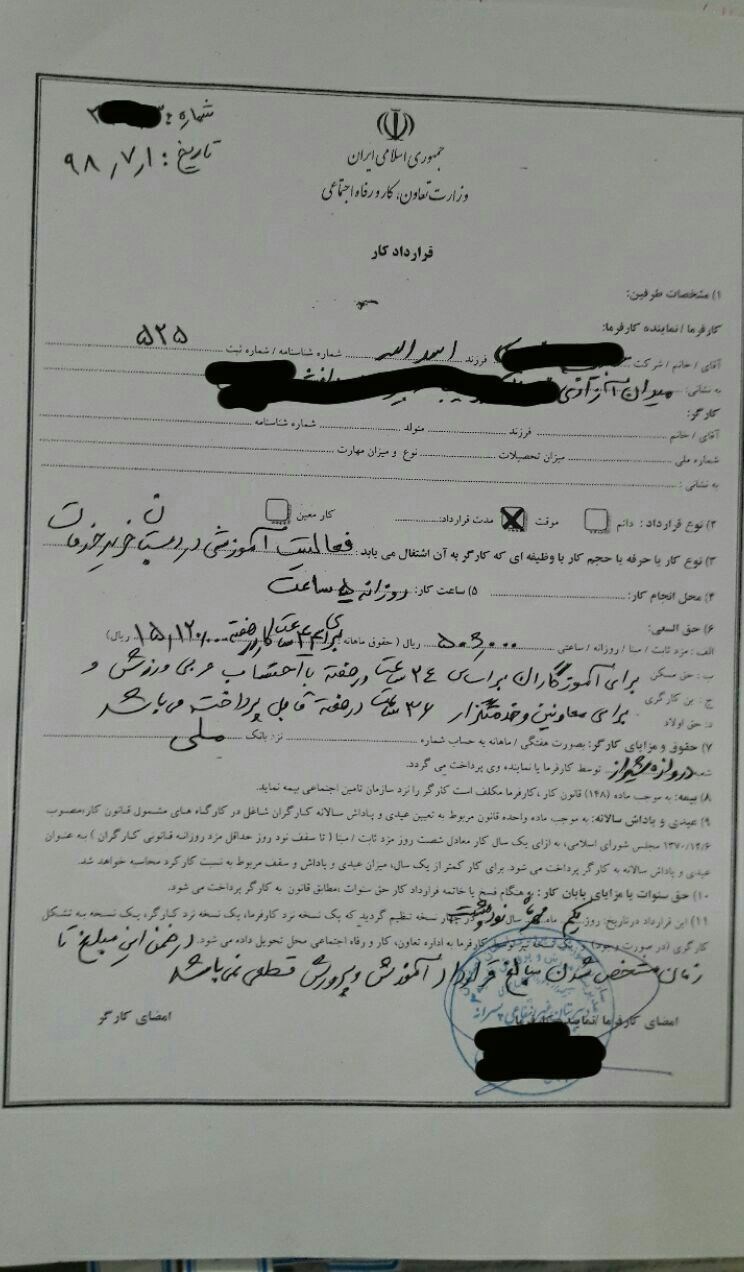 شماره:
تاریخ: ۹۸٫۷٫۱
جمهوری اسلامی ایران
وزارت تعاون، کار و رفاه اجتماعی
قرارداد کار
۱) مشخصات طرفین:
کارفرما / نماینده کارفرما:
آقای / خانم / شرکت فرزند اسداله شماره شناسنامه / شماره ثبت ۵۲۵
به نشانی: میدان آزادی
کارگر:
آقای / خانم فرزند متولد شماره شناسنامه
شماره ملی میزان تحصیلات نوع و میزان مهارت
به نشانی:
۲) نوع قرارداد: دائم موقت مدت قرارداد: کار معین
۳) نوع کار یا حرفه یا حجم کار یا وظیفه ای که کارگر به آن اشتغال می یابد: فعالیت آموزشی در دبستان خرید خدمات
۴) محل انجام کار: ۵) ساعت کار: روزانه ساعت
۶) حق السعی:
الف: مزد ثابت / مبنا / روزانه / ساعتی ریال ( حقوق ماهانه برای ۴۴ ساعت کار در هفته ریال)
ب: حق مسکن برای آموزگاران براساس ۲۴ ساعت در هفته با احتساب مربی ورزش و
ج: بن کارگری برای معاونین و خدمتگزار ۳۶ ساعت در هفته قابل پرداخت می باشد
د: حق اولاد
۷) حقوق و مزایای کارگر: بصورت هفتگی / ماهانه به حساب شماره نزد بانک ملی
شعبه دروازه شیراز توسط کارفرما یا نماینده وی پرداخت می گردد.
۸) بیمه: به موجب ماده (۱۴۸) قانون کار، کارفرما مکلف است کارگر را نزد سازمان تامین اجتماعی بیمه نماید.
۹) عیدی و پاداش سالانه: به موجب ماده واحده قانون مربوط به تعیین عیدی و پاداش سالانه کارگران شاغل در کارگاه های مشمول قانون کار، مصوب
۱۳۷۰/۱۲/۶ مجلس شورای اسلامی، به ازای یک سال کار معادل شصت روز مزد ثابت / مبنا ( تا سقف نود روز حداقل مزد روزانه قانونی کارگران ) به عنوان
عیدی و پاداش سالانه به کارگر پرداخت می شود. برای کار کمتر از یک سال، میزان عیدی و پاداش و سقف مربوط به نسبت کارکرد محاسبه خواهد شد.
۱۰) حق سنوات یا مزایای پایان کار: به هنگام فسخ یا خاتمه قرارداد کار حق سنوات مطابق قانون به کارگر پرداخت می شود.
۱۱) این قرارداد درتاریخ: روز یکم ماه مهر سال نود و هشت در چهار نسخه تنظیم گردید که یک نسخه نزد کارفرما، یک نسخه نزد کارگر، یک نسخه به تشکل
کارگری (در صورت وجود) و یک نسخه نیز توسط کارفرما به اداره تعاون، کار و رفاه اجتماعی محل تحویل داده می شود. در ضمن این مبلغ تا
زمان مشخص شدن مبالغ قرارداد آموزش و پرورش قطعی نمی باشد
دبیرستان غیرانتفاعی پسرانه
امضای کارفرما / نماینده کارفرما امضای کارگر